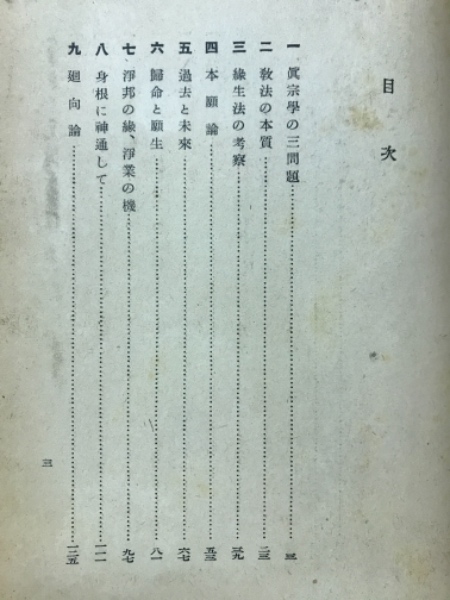 目次
一 眞宗學の三問題
二 敎法の本質 二三
三 緣生法の考察 三九
四 本願論 五三
五 過去と未來 六七
六 歸命と願生 八一
七 淨邦の緣、淨業の機 九七
八 身根に神通して 一一一
九 廻向論 一二五
三